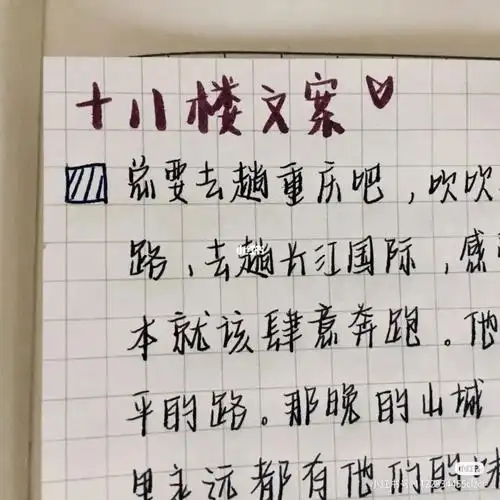 十八楼文案♡
总要去趟重庆吧，吹吹
路、去趟长江国际，感
本就该肆意奔跑。他
平的路。那晚的山城
里永远都有他们的
小红书